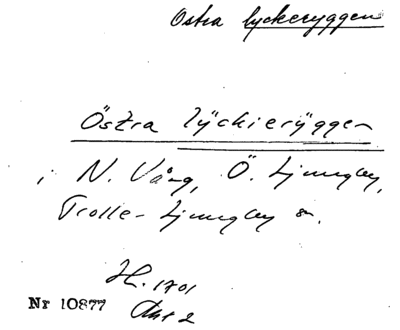 Östra lyckeryggen
Östra lÿckierÿggen
i N. Vång, Ö. Ljungby,
Trolle-Ljungby sn.
H. 1701
Akt 2
Nr 10877